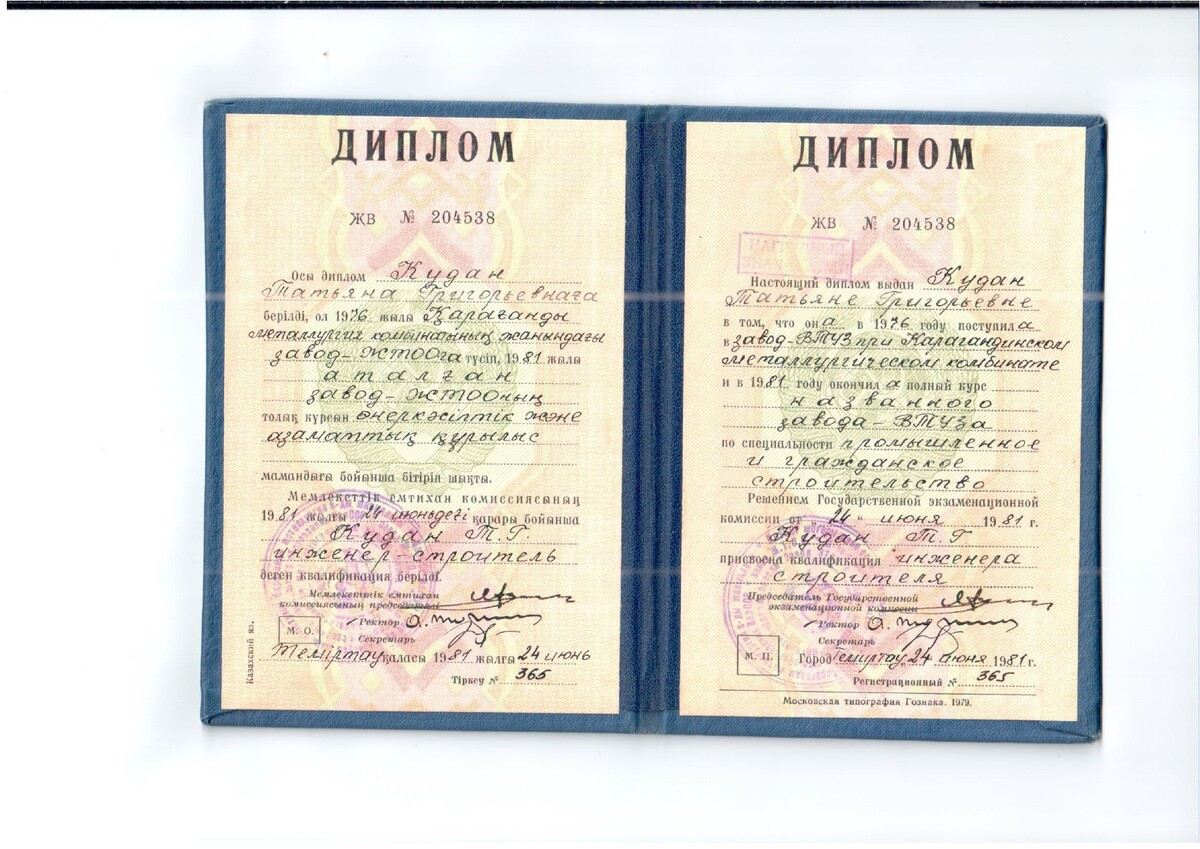 ДИПЛОМ
ЖВ № 204538
Осы диплом Кудан
Татьяна Григорьевнаға
берілді, ол 1976 жылы Қарағанды
металлургия комбинатының жанындағы
завод-ЖТООға түсіп, 1981 жылы
аталған
завод-ЖТООның
толық курсын өнеркәсіптік және
азаматтық құрылыс
мамандығы бойынша бітіріп шықты.
Мемлекеттік емтихан комиссиясының
1981 жылғы 24 июньдегі қарары бойынша
Кудан Т.Г.
инженер-строитель
деген квалификация берілді.
Мемлекеттік емтихан
комиссиясының председателі
Ректор
Секретарь
М. О.
Теміртау қаласы 1981 жылғы 24 июнь
Тіркеу № 365
Казахский яз.
ДИПЛОМ
ЖВ № 204538
Настоящий диплом выдан Кудан
Татьяне Григорьевне
в том, что она в 1976 году поступила
в завод-ВТУЗ при Карагандинском
металлургическом комбинате
и в 1981 году окончила полный курс
названного
завода-ВТУЗа
по специальности промышленное
и гражданское
строительство
Решением Государственной экзаменационной
комиссии от "24" июня 1981 г.
Кудан Т.Г
присвоена квалификация инженера
строителя
Председатель Государственной
экзаменационной комиссии
Ректор
Секретарь
М. П.
Город Темиртау 24 июня 1981 г.
Регистрационный № 365
Московская типография Гознака. 1979.